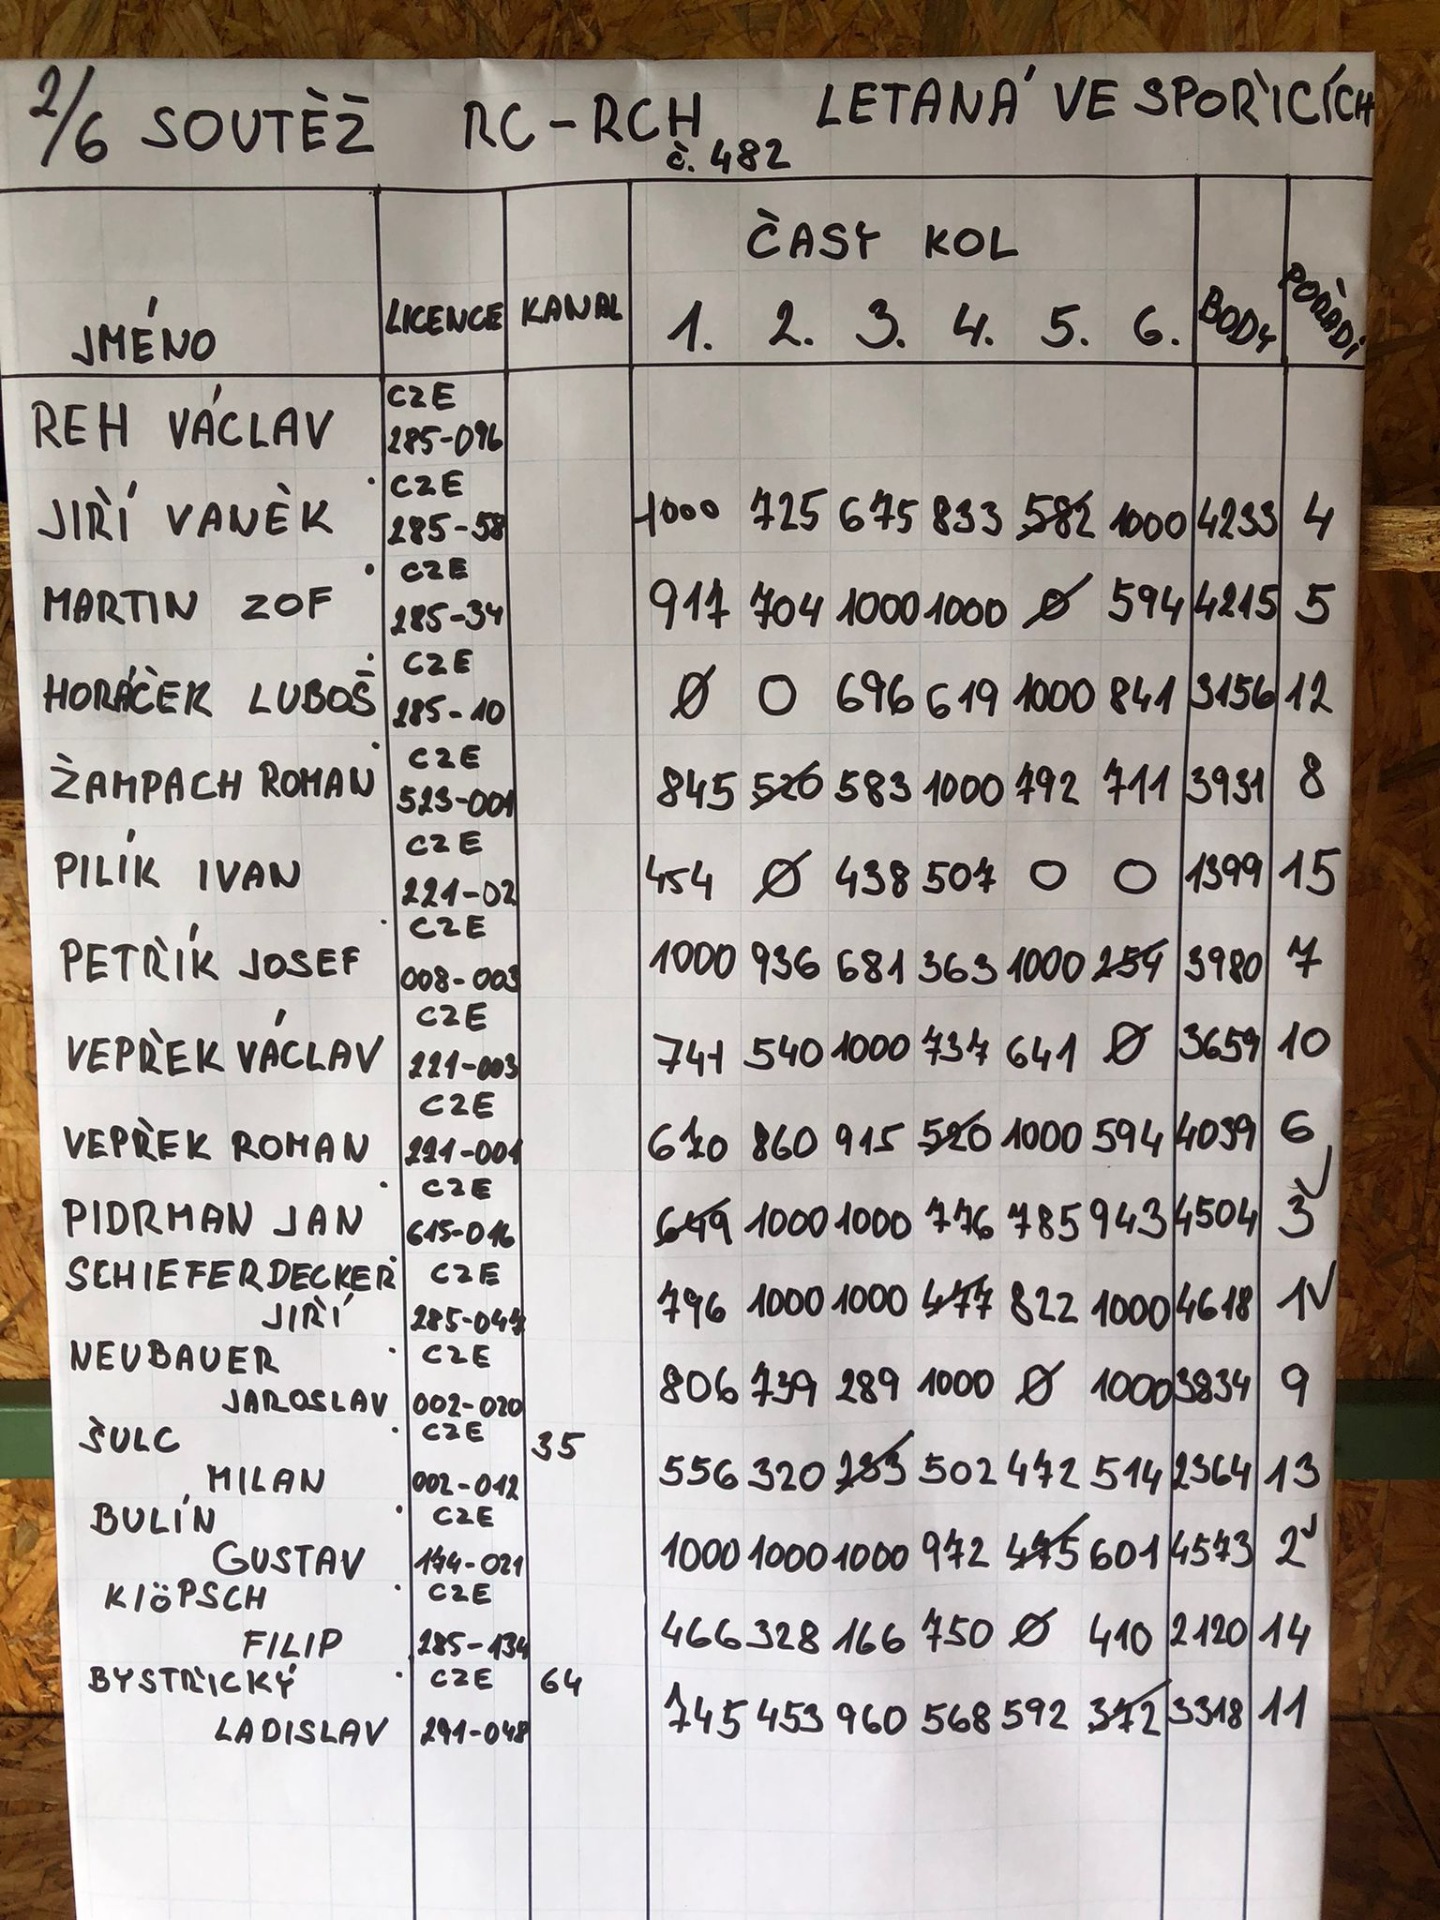 2/6 SOUTĚŽ RC-RCH LETANÁ VE SPOŘICÍCH
č. 482
ČASY KOL
JMÉNO LICENCE KANAL 1. 2. 3. 4. 5. 6. BODY POŘADÍ
CZE
REH VÁCLAV 285-096
CZE
JIŘÍ VANĚK 285-58 1000 725 675 833 582 1000 4233 4
CZE
MARTIN ZOF 285-34 917 704 1000 1000 0 594 4215 5
CZE
HORÁČEK LUBOŠ 285-10 0 0 696 619 1000 841 3156 12
CZE
ŽAMPACH ROMAN 523-001 845 520 583 1000 792 711 3931 8
CZE
PILÍK IVAN 221-02 454 0 438 507 0 0 1399 15
CZE
PETŘÍK JOSEF 008-003 1000 936 681 363 1000 254 3980 7
CZE
VEPŘEK VÁCLAV 221-003 741 540 1000 737 641 0 3659 10
CZE
VEPŘEK ROMAN 221-001 670 860 915 520 1000 594 4039 6
CZE
PIDRMAN JAN 615-016 649 1000 1000 776 785 943 4504 3
SCHIEFERDECKER CZE
JIŘÍ 285-047 796 1000 1000 477 822 1000 4618 1
NEUBAUER CZE
JAROSLAV 002-020 806 739 289 1000 0 1000 3834 9
ŠULC CZE 35
MILAN 002-012 556 320 283 502 472 514 2364 13
BULÍN CZE
GUSTAV 174-021 1000 1000 1000 972 475 601 4573 2
KlöPSCH CZE
FILIP 285-134 466 328 166 750 0 410 2120 14
BYSTŘICKÝ CZE 64
LADISLAV 291-048 745 453 960 568 592 372 3318 11